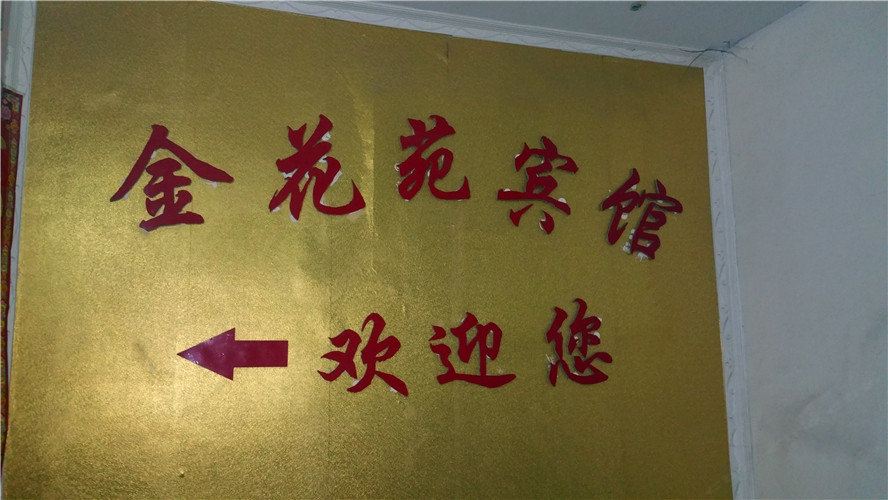 金花苑宾馆
欢迎您